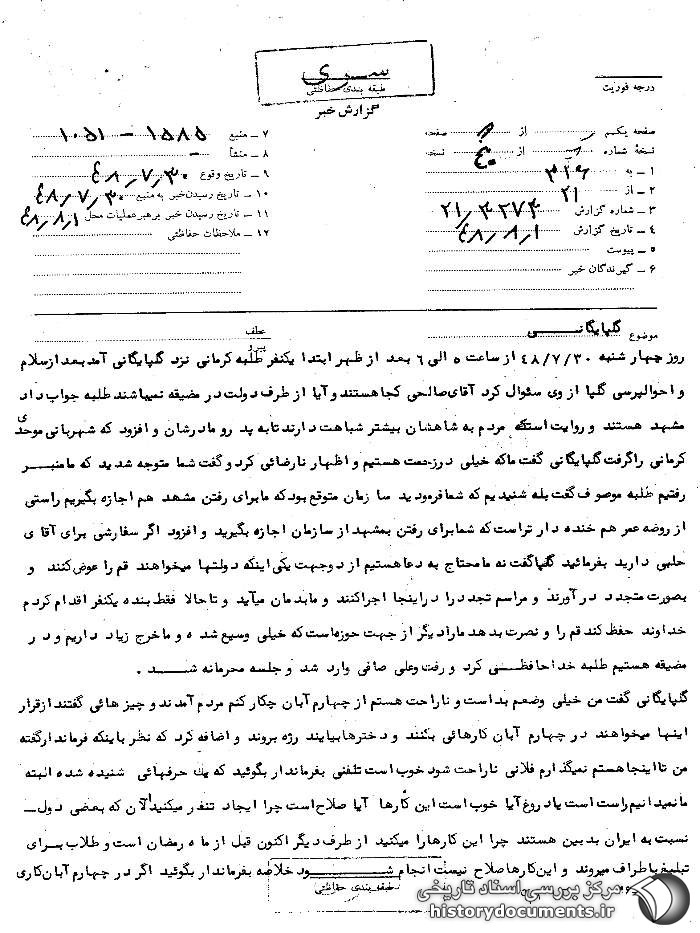 سری
طبقه بندی حفاظتی
گزارش خبر
درجه فوریت
صفحه یکم از صفحه
نسخهٔ شماره از نسخه
۱ – به ۳۲۶
۲ – از ۲۱
۳ – شماره گزارش
۴ – تاریخ گزارش ۴۸/۸/۱
۵ – پیوست
۶ – گیرندگان خبر
۷ – منبع ۱۵۸۵ – ۱۰۵۱
۸ – منشأ –
۹ – تاریخ وقوع ۴۸/۷/۳۰
۱۰ – تاریخ رسیدن خبر به منبع ۴۸/۷/۳۰
۱۱ – تاریخ رسیدن خبر برهبر عملیات محل ۴۸/۸/۱
۱۲ – ملاحظات حفاظتی
موضوع گلپایگانی
عطف
پیرو
روز چهار شنبه ۴۸/۷/۳۰ از ساعت ۵ الی ۶ بعد از ظهر ابتدا یکنفر طلبه کرمانی نزد گلپایگانی آمد بعد از سلام
و احوالپرسی گلپا از وی سئوال کرد آقای صالحی کجا هستند و آیا از طرف دولت در مضیقه نمیباشند طلبه جواب داد
مشهد هستند و روایت است که مردم به شاهشان بیشتر شباهت دارند تا به پدر و مادرشان و افزود که شهربانی موحدی
کرمانی را گرفت گلپایگانی گفت ما که خیلی در زحمت هستیم و اظهار نارضائی کرد و گفت شما متوجه شدید که ما منبر
رفتیم طلبه موصوف گفت بله شنیدیم که شما فرمودید سازمان متوقع بود که ما برای رفتن مشهد هم اجازه بگیریم راستی
از روضه عمر هم خنده دار تر است که شما برای رفتن بمشهد از سازمان اجازه بگیرید و افزود اگر سفارشی برای آقای
حلبی دارید بفرمائید گلپا گفت نه ما محتاج به دعا هستیم از دو جهت یکی اینکه دولتها میخواهند قم را عوض کنند و
بصورت متجدد در آورند و مراسم تجدد را در اینجا اجرا کنند و ما بدمان میآید و تا حالا فقط بنده یکنفر اقدام کردم
خداوند حفظ کند قم را و نصرت بدهد ما را دیگر از جهت حوزه است که خیلی وسیع شده و ما خرج زیاد داریم و در
مضیقه هستیم طلبه خدا حافظی کرد و رفت و علی صافی وارد شد و جلسه محرمانه شد .
گلپایگانی گفت من خیلی وضعم بد است و ناراحت هستم از چهارم آبان چکار کنم مردم آمدند و چیز هائی گفتند از قرار
اینها میخواهند در چهارم آبان کارهائی بکنند و دخترها بیایند رژه بروند و اضافه کرد که نظر باینکه فرماندار گفته
من تا اینجا هستم نمیگذارم فلانی ناراحت شود خوب است تلفنی بفرماندار بگوئید که یك حرفهائی شنیده شده البته
ما نمیدانیم راست است یا دروغ آیا خوب است این کارها آیا صلاح است چرا ایجاد تنفر میکنید الآن که بعضی دول –
نسبت به ایران بد بین هستند چرا این کارها را میکنید از طرف دیگر اکنون قبل از ماه رمضان است و طلاب برای
تبلیغ باطراف میروند و این کارها صلاح نیست انجام شود خلاصه بفرماندار بگوئید اگر در چهارم آبان کاری
طبقه بندی حفاظتی
مرکز بررسی اسناد تاریخی
historydocuments.ir